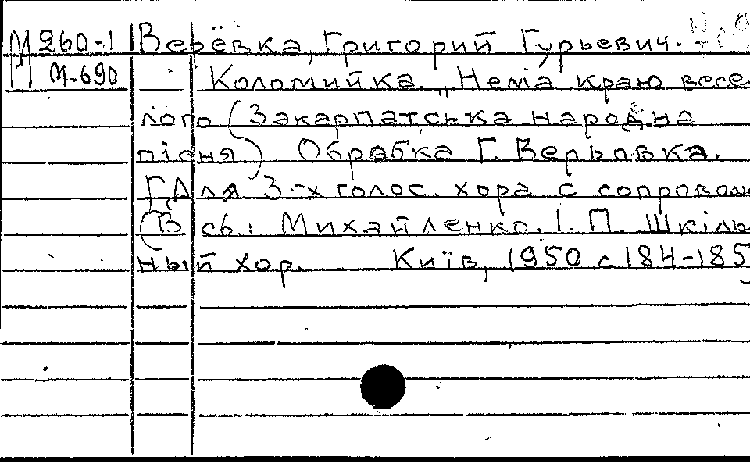 М 260-1 Верёвка, Григорий Гурьевич.
М-690 Коломийка. „Нема краю весе-
лого (Закарпатська народна
пісня) Обрабка Г. Верьовка.
Для 3-х голос. хора с сопровож
(В сб.: Михайленко. І. П. Шкіль-
ный хор. Київ, 1950 с 184-185